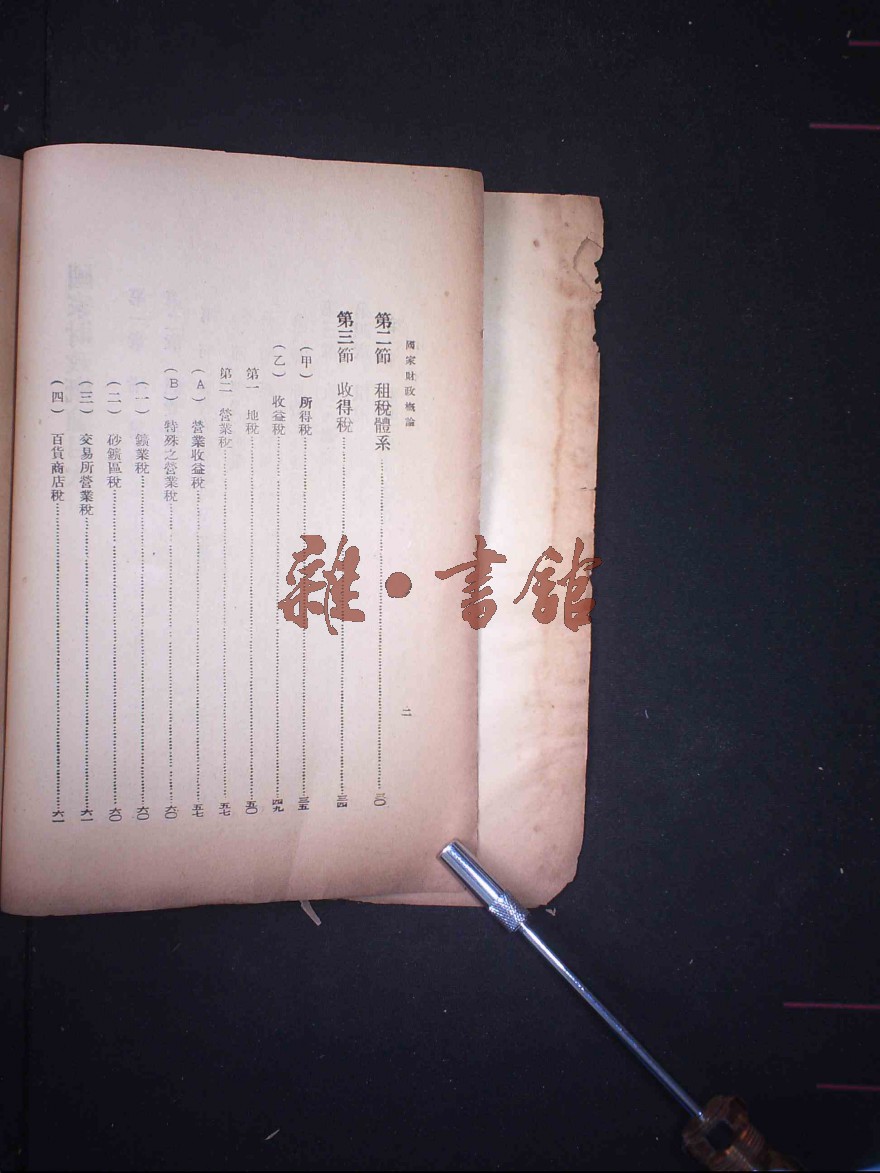 國家財政概論
二
第二節 租稅體系…………三〇
第三節 收得稅…………三四
(甲) 所得稅…………三五
(乙) 收益稅…………四九
第一 地稅…………五〇
第二 營業稅…………五七
(A) 營業收益稅…………五七
(B) 特殊之營業稅…………六〇
(一) 鑛業稅…………六〇
(二) 砂鑛區稅…………六〇
(三) 交易所營業稅…………六一
(四) 百貨商店稅…………六一
雜·書館